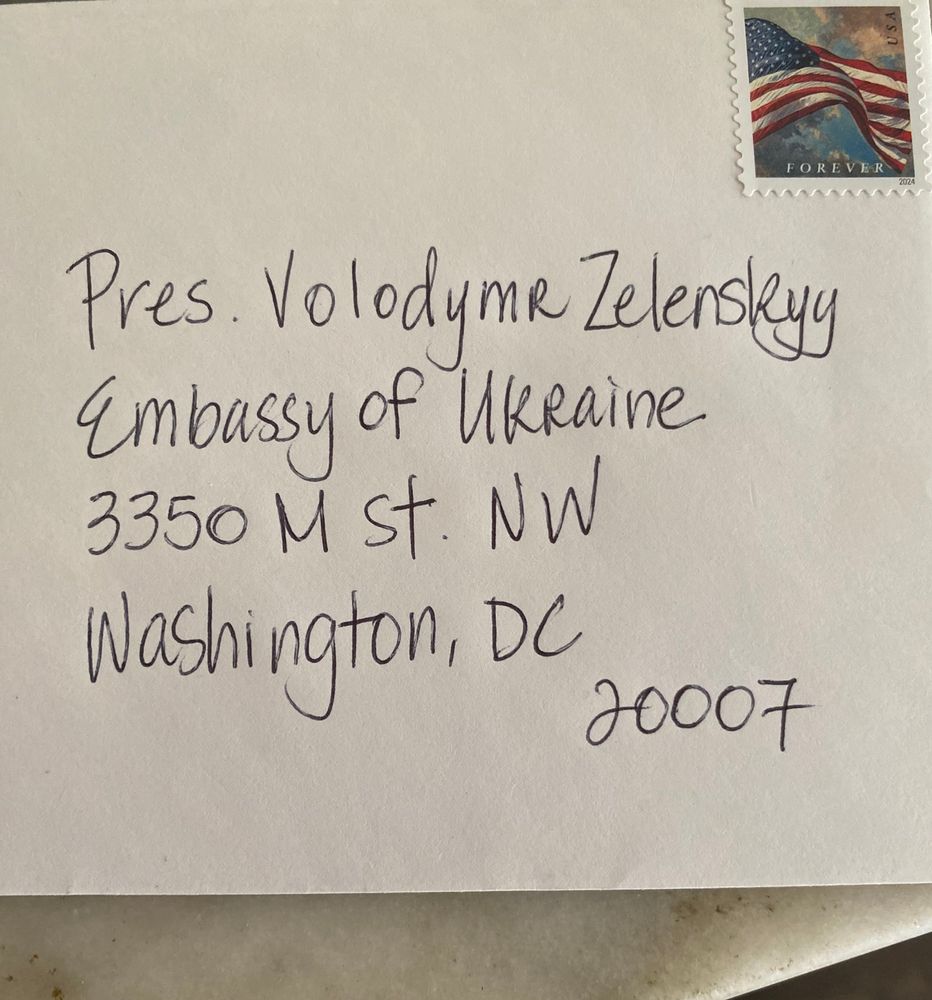 USA
FOREVER
2024
Pres. Volodymr Zelenskyy
Embassy of Ukraine
3350 M St. NW
Washington, DC
20007